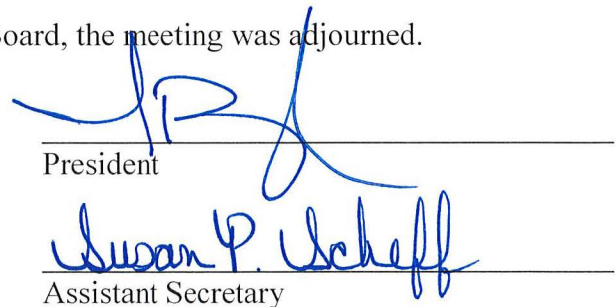 Board, the meeting was adjourned.
President
Susan P. Scheff
Assistant Secretary